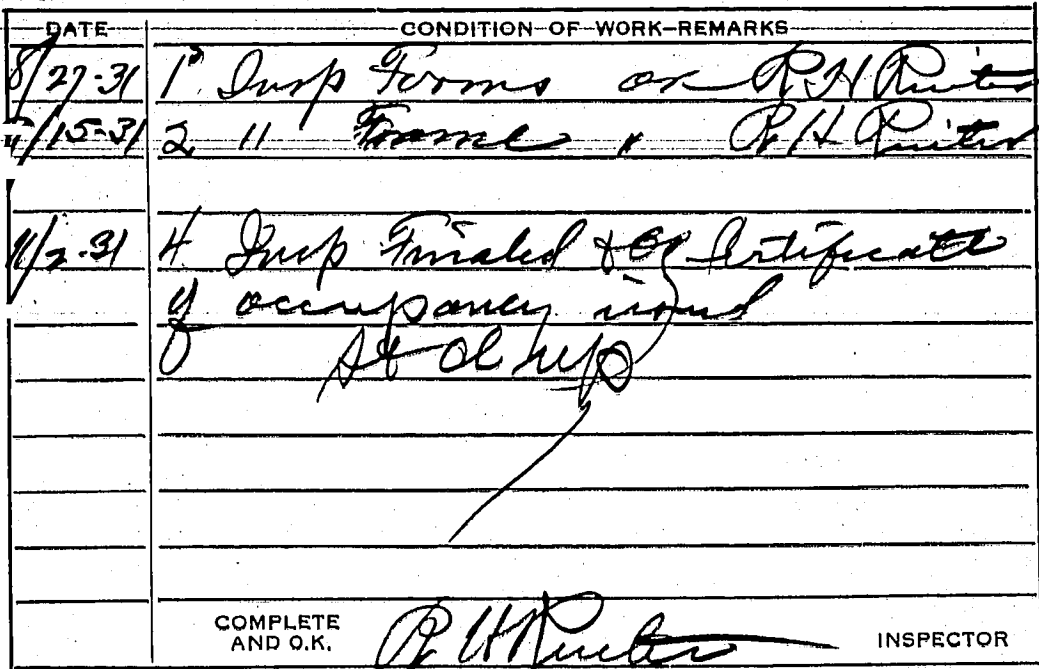 DATE CONDITION OF WORK-REMARKS
8/27-31 1st Insp Forms OK R. H. Ruiter
/15-31 2 " Frame " R H Ruiter
11/2-31 4 Insp Finaled & Certificate
of occupancy issued
COMPLETE
AND O.K. R H Ruiter INSPECTOR